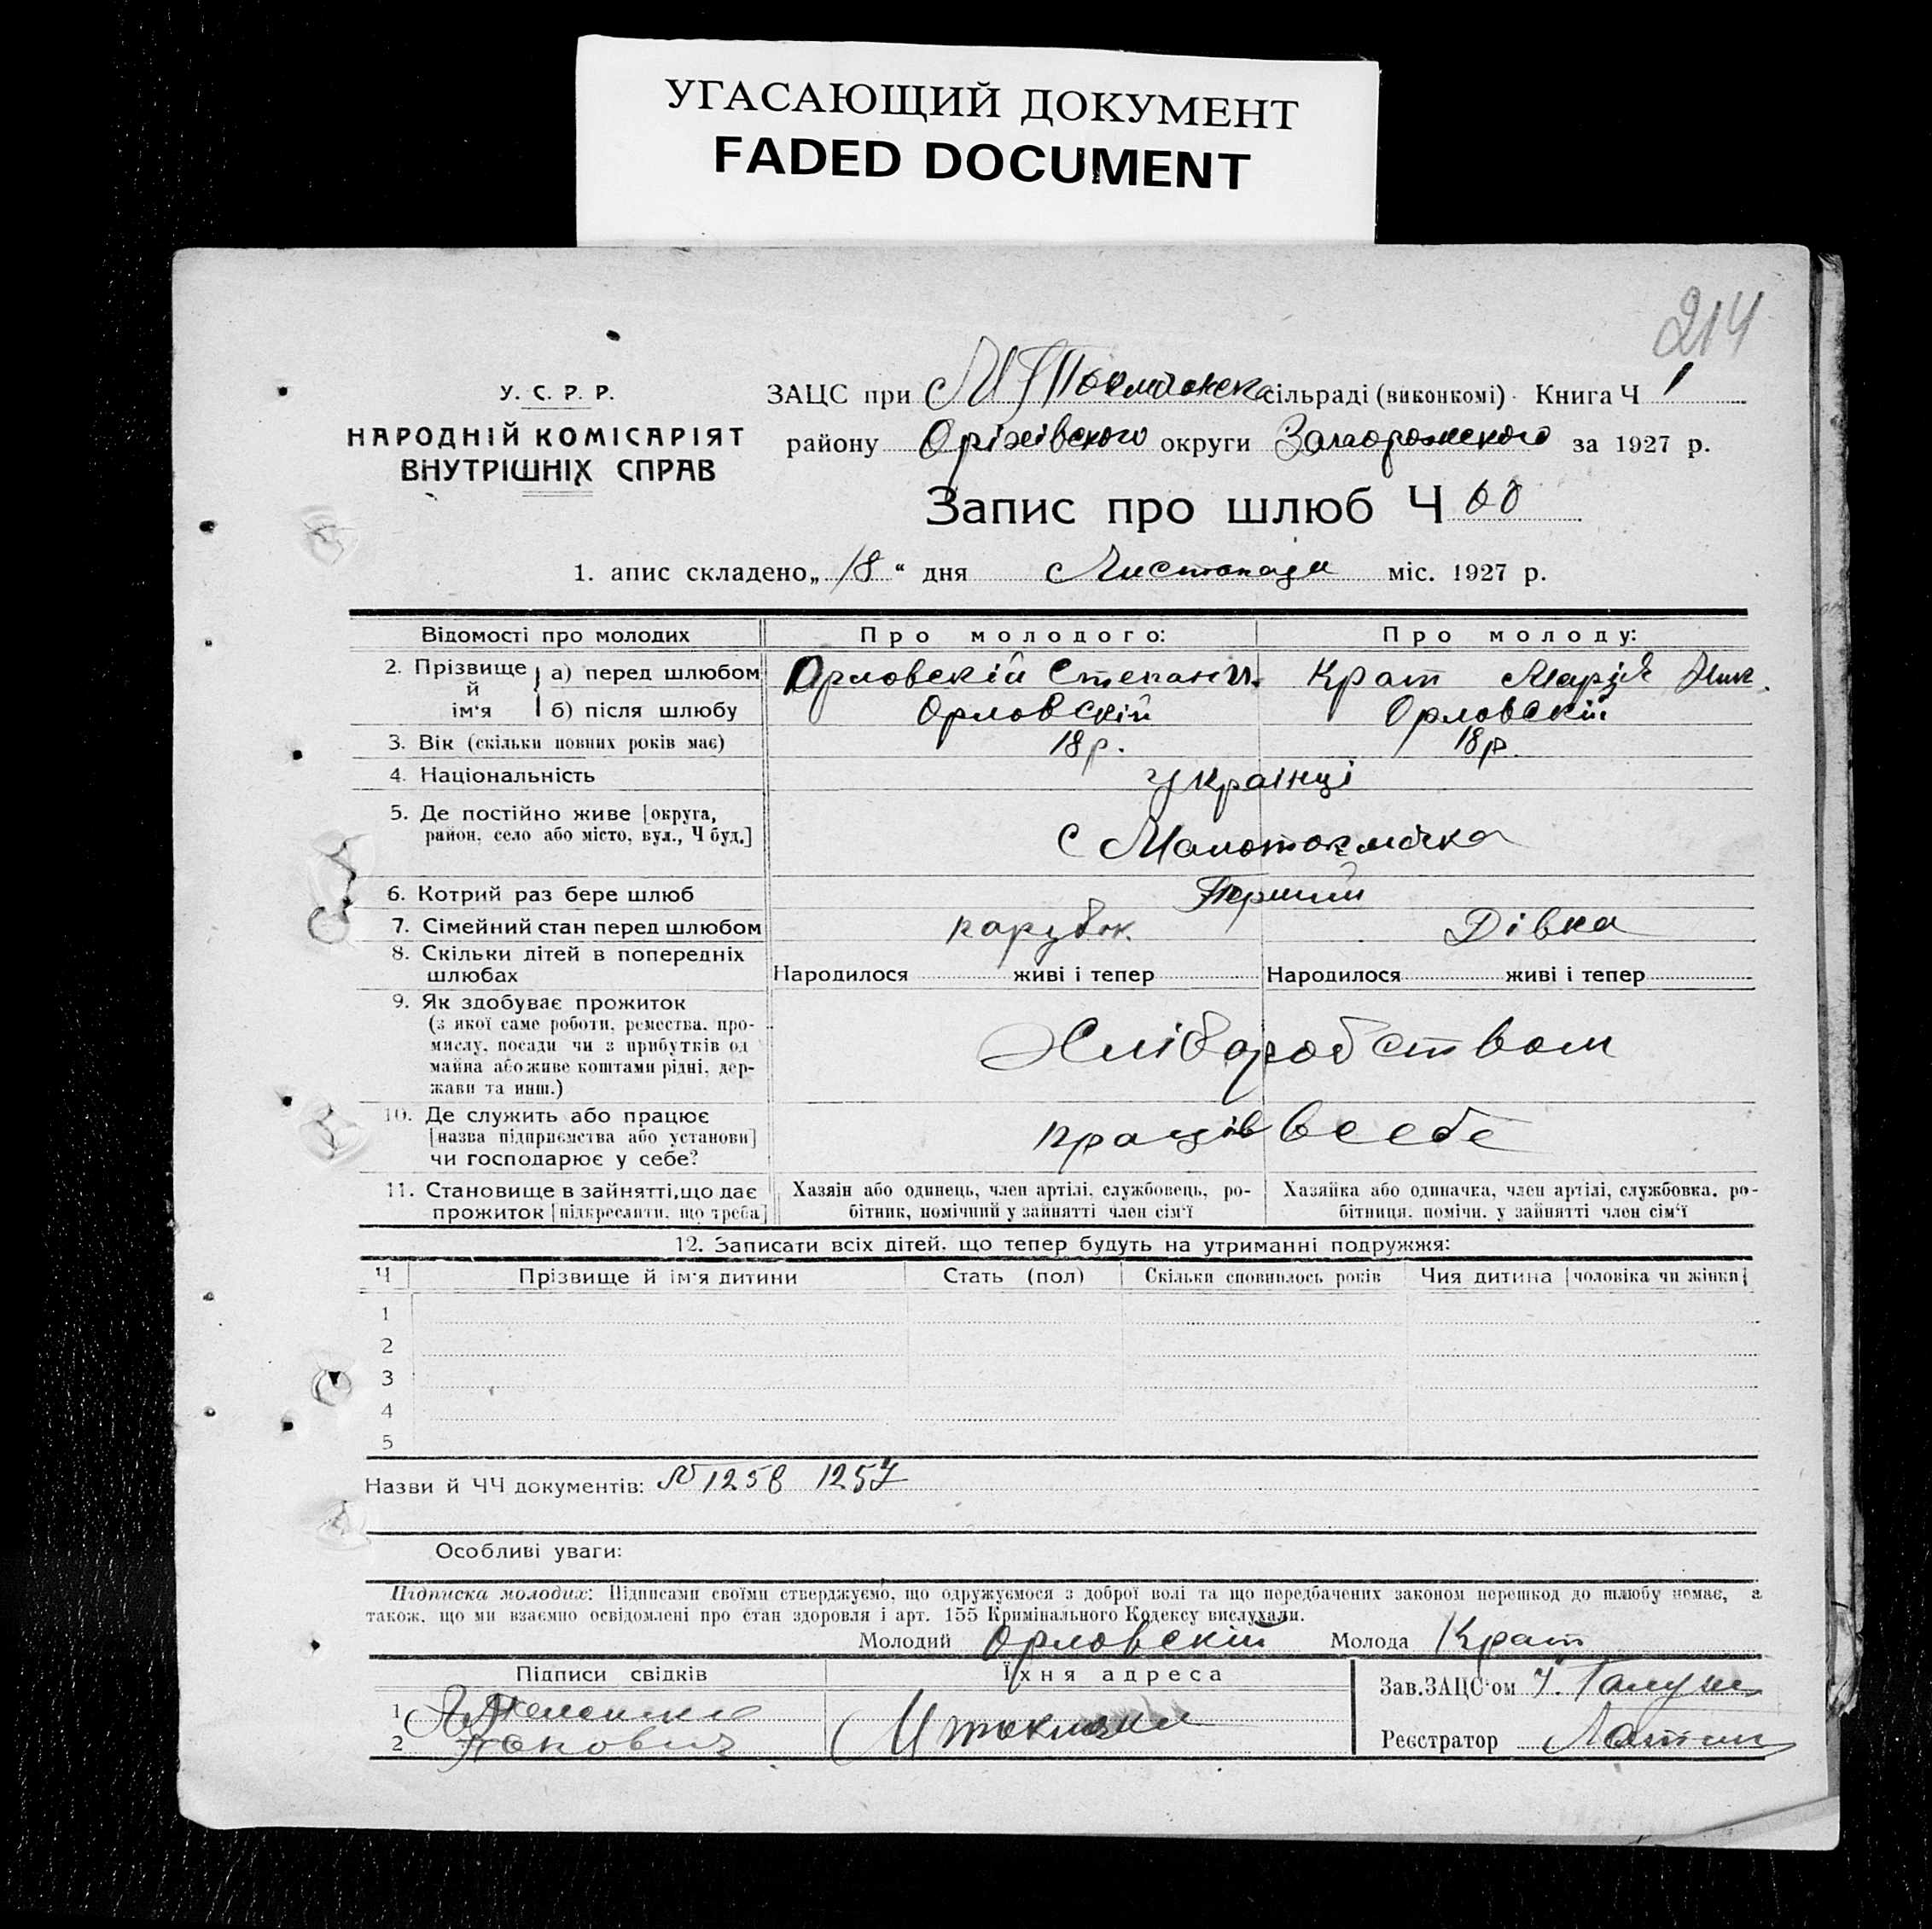 УГАСАЮЩИЙ ДОКУМЕНТ
FADED DOCUMENT
214
У. С. Р. Р.
НАРОДНІЙ КОМІСАРІЯТ
ВНУТРІШНІХ СПРАВ
ЗАЦС при сільраді (виконкомі) Книга Ч 1
району Оріхівского округи Запорожского за 1927 р.
Запис про шлюб Ч 60
1. апис складено „18“ дня Листопада міс. 1927 р.
Відомості про молодих Про молодого: Про молоду:
2. Прізвище й ім'я а) перед шлюбом Орловскій Степан И. Крат Марія Ник.
б) після шлюбу Орловскій Орловскій
3. Вік (скільки повних років має) 18 р. 18 р.
4. Національність Українці
5. Де постійно живе [округа,
район, село або місто, вул., Ч буд.] с Малотокмачка
6. Котрий раз бере шлюб Перший
7. Сімейний стан перед шлюбом парубок Дівка
8. Скільки дітей в попередніх
шлюбах Народилося живі і тепер Народилося живі і тепер
9. Як здобуває прожиток
(з якої саме роботи, ремества, про-
мислу, посади чи з прибутків од
майна або живе коштами рідні, дер-
жави та инш.) Хліборобством
10. Де служить або працює
[назва підприємства або установи]
чи господарює у себе? в себе
11. Становище в зайнятті, що дає
прожиток [підкреслити, що треба]
Хазяїн або одинець, член артілі, службовець, ро-
бітник, помічний у зайнятті член сім'ї
Хазяйка або одиначка, член артілі, службовка, ро-
бітниця, помічн. у зайнятті член сім'ї
12. Записати всіх дітей, що тепер будуть на утриманні подружжя:
Ч Прізвище й ім'я дитини Стать (пол) Скільки сповнилось років Чия дитина [чоловіка чи жінки]
1
2
3
4
5
Назви й ЧЧ документів: № 1256 1257
Особливі уваги:
Підписка молодих: Підписами своїми стверджуємо, що одружуємося з доброї волі та що передбачених законом перешкод до шлюбу немає, а
також, що ми взаємно освідомлені про стан здоровля і арт. 155 Кримінального Кодексу вислухали.
Молодий Орловскій Молода Крат
Підписи свідків Їхня адреса Зав. ЗАЦС'ом
1
2 Реєстратор